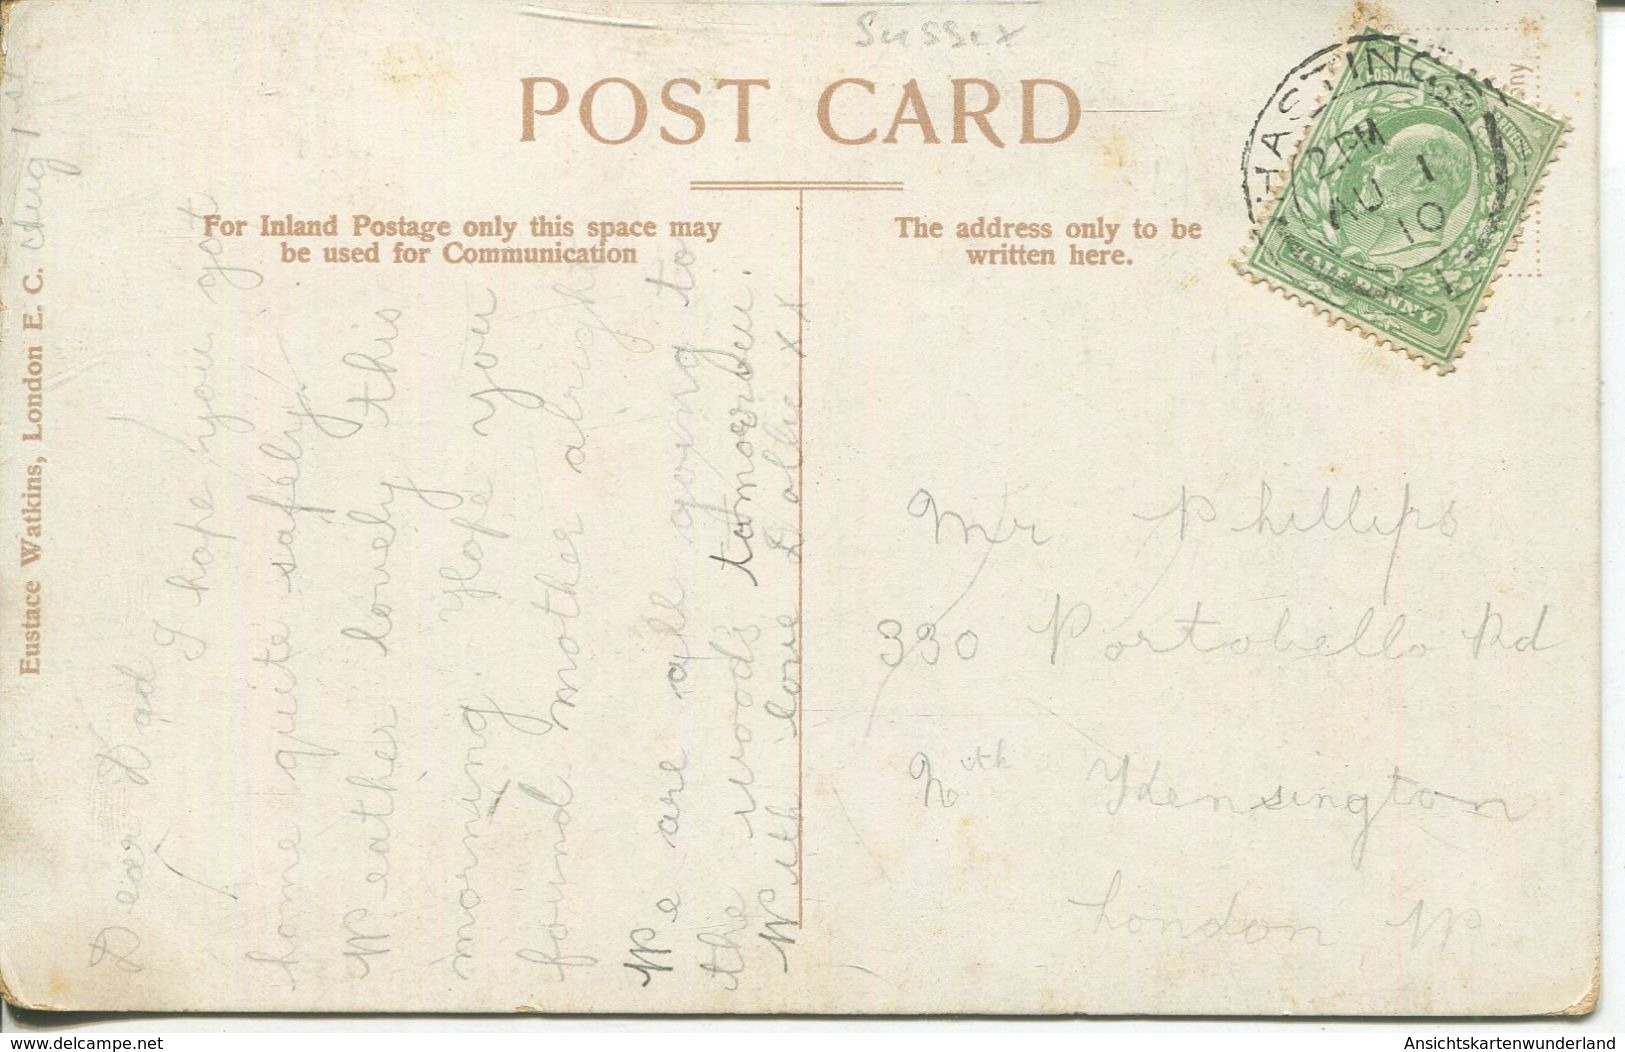 Sussex
POST CARD
For Inland Postage only this space may
be used for Communication
The address only to be
written here.
HASTINGS
2. PM
AU 1
10
POSTAGE
HALFPENNY
Eustace Watkins, London E. C.
Aug 1st
Dear Dad
I hope you got
home quite safely.
Weather lovely this
morning. Hope you
found mother alright
We are all going to
the woods tomorrow.
With love Dollie xx
Mr Phillips
330 Portobello Rd
Nth Kensington
London W
delcampe.net
Ansichtskartenwunderland